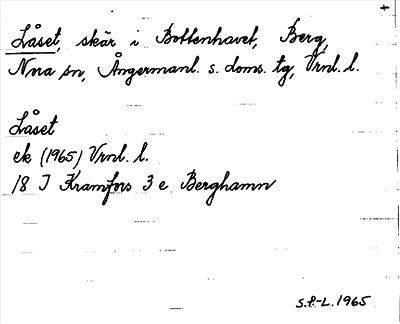 Låset, skär i Bottenhavet, Berg,
Nora sn, Ångermanl. s. doms. tg, Vrnl. l.
Låset
ek (1965) Vrnl. l.
18 I Kramfors 3 e Berghamn
s.f-L. 1965